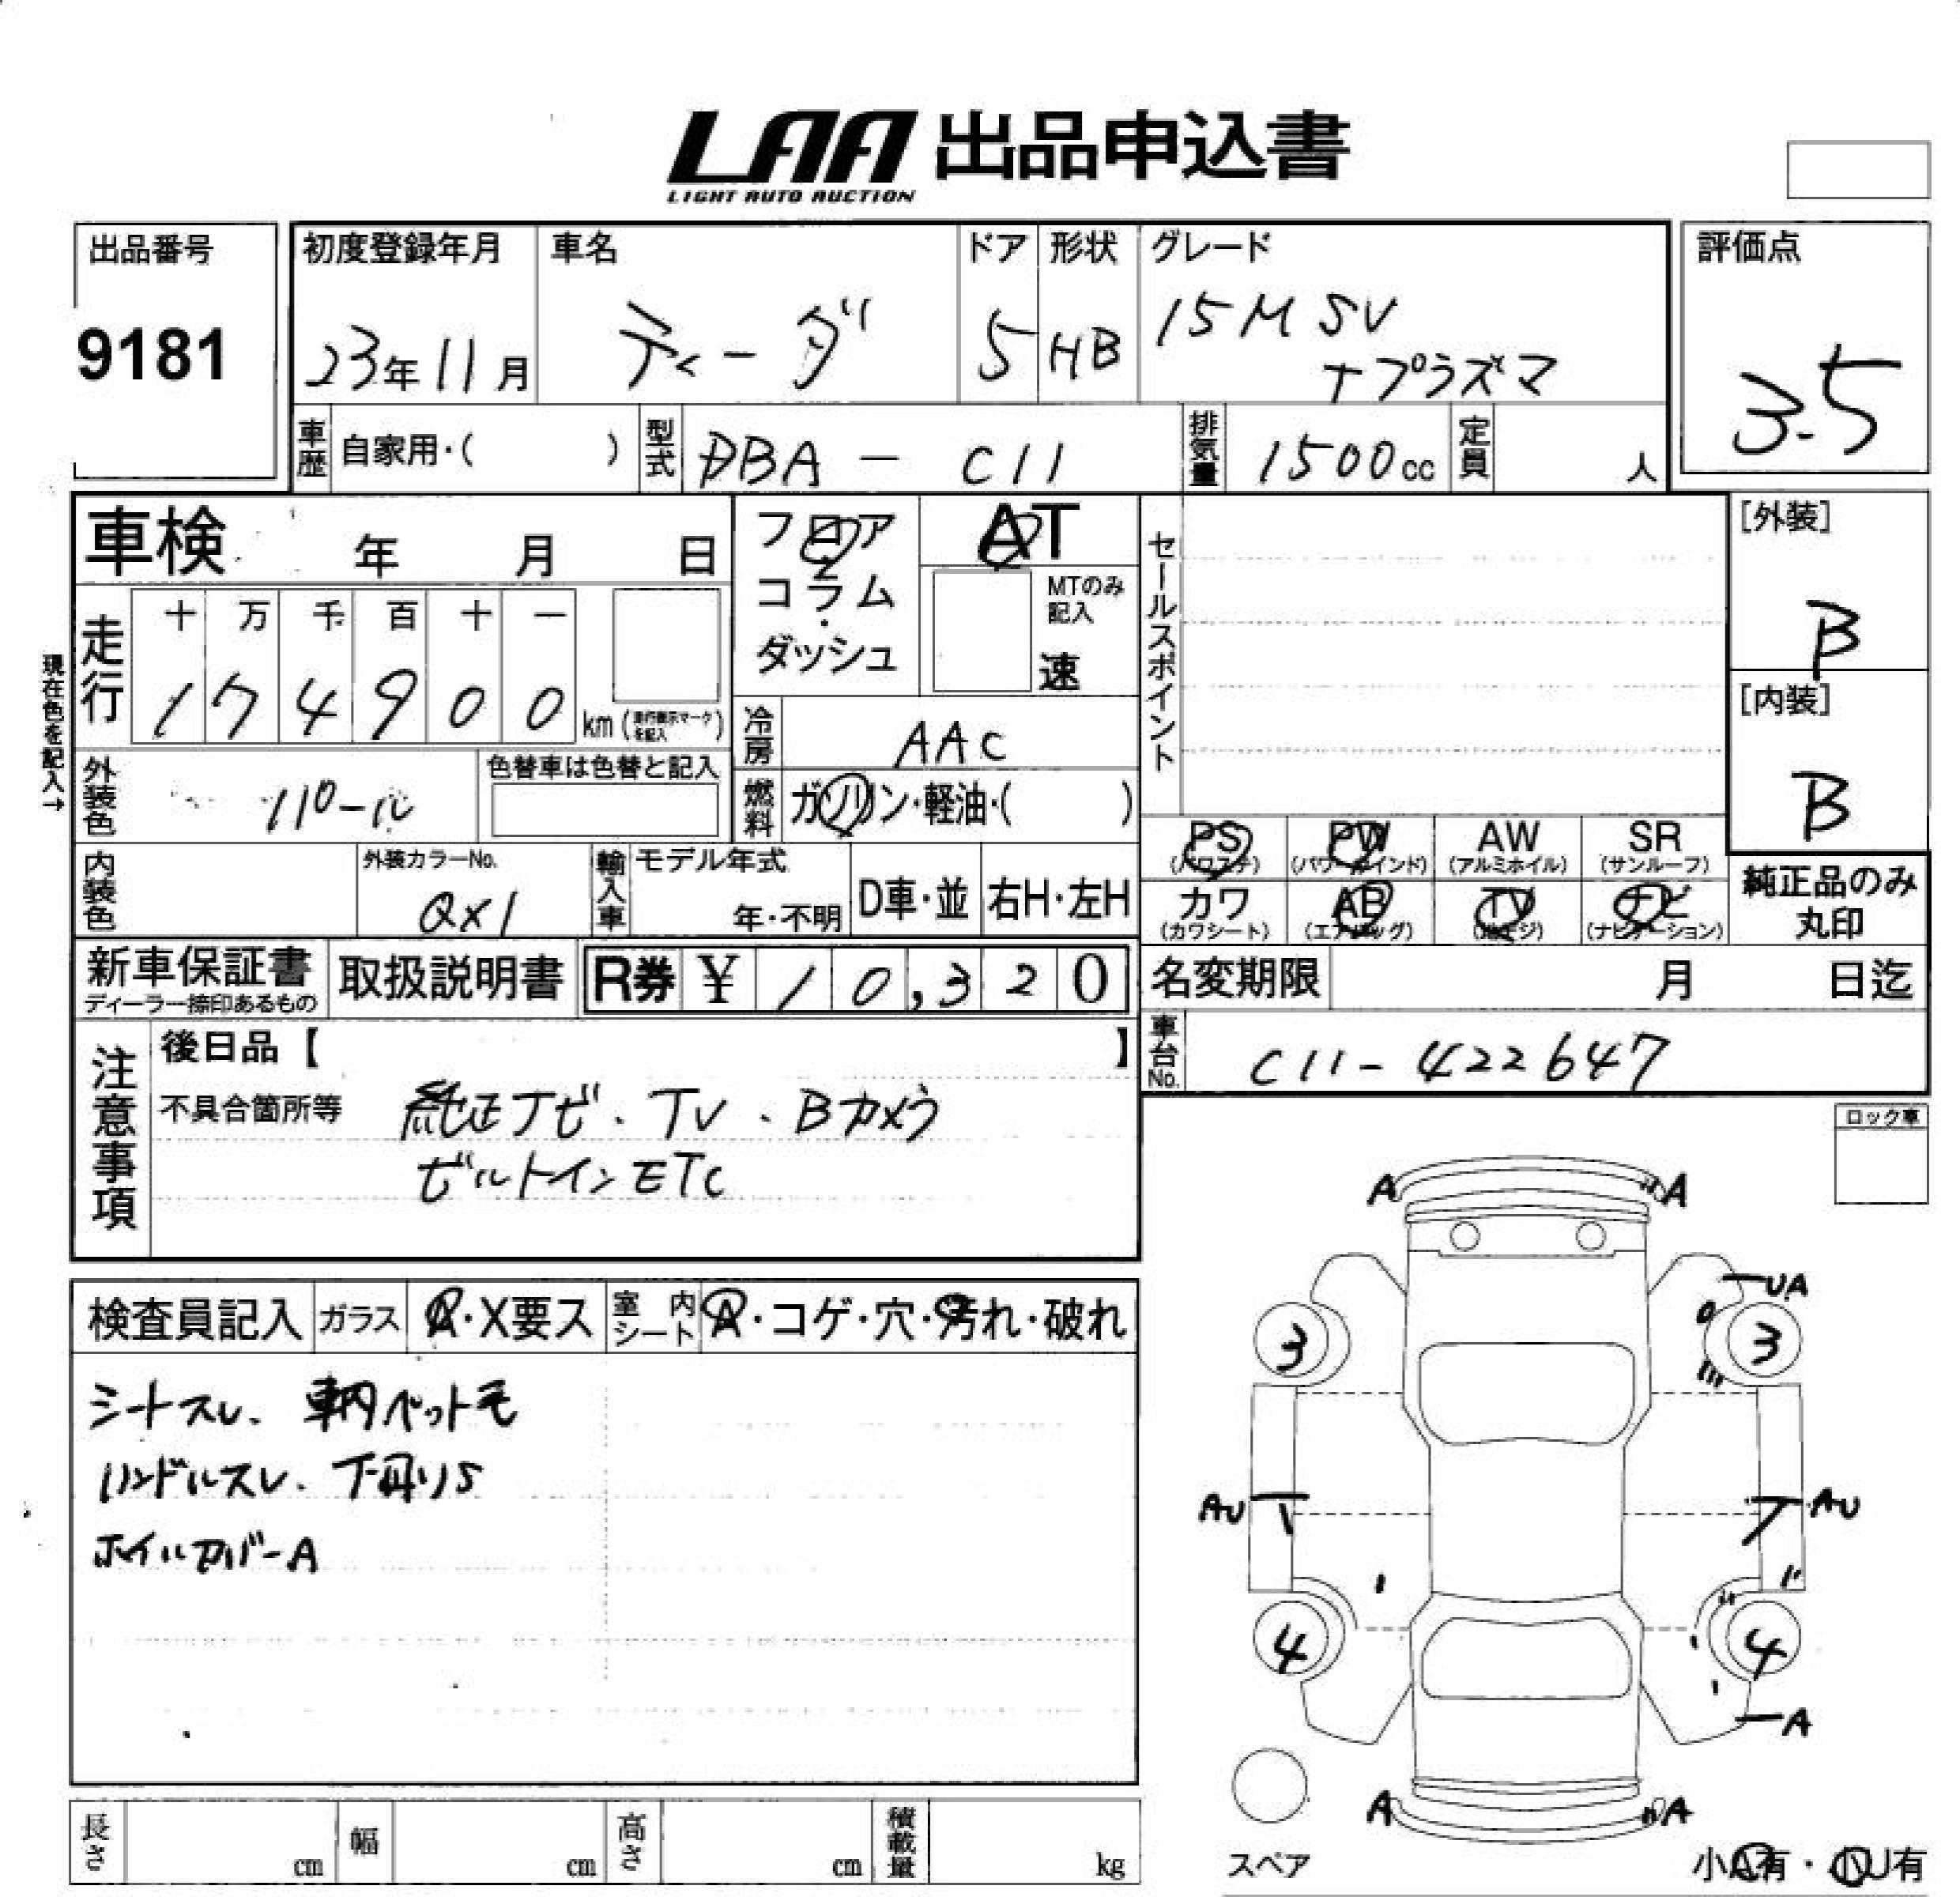 LAA 出品申込書
LIGHT AUTO AUCTION
出品番号
9181
初度登録年月
23年11月
車名
ティーダ
ドア
5
形状
HB
グレード
15M SV
+プラズマ
評価点
3.5
車歴 自家用・( )
型式 DBA - C11
排気量 1500cc
定員 人
車検 年 月 日
フロア
コラム
・
ダッシュ
AT
MTのみ
記入
速
セールスポイント
[外装]
B
[内装]
B
走行
十 万 千 百 十 一
1 7 4 9 0 0 km (走行表示マークを記入)
現在色を記入→
冷房 AAC
外装色 パール
色替車は色替と記入
燃料 ガソリン・軽油・( )
PS (パワステ)
PW (パワーウインド)
AW (アルミホイル)
SR (サンルーフ)
カワ (カワシート)
AB (エアバッグ)
TV (テレビ)
ナビ (ナビゲーション)
純正品のみ
丸印
内装色
外装カラーNo.
QX1
輸入車
モデル年式
年・不明
D車・並
右H・左H
新車保証書
ディーラー捺印あるもの
取扱説明書
R券 ¥ 10,320
名変期限 月 日迄
車台No. C11-422647
注意事項
後日品【 】
不具合箇所等 純正ナビ・TV・Bカメラ
ビルトインETC
ロック車
検査員記入
ガラス A・X要ス
室内シート A・コゲ・穴・汚れ・破れ
シートスレ、車内ペット毛
ハンドルスレ、下廻りS
ホイルカバーA
A A
UA
3 3
AU AU
4 4
A
A A
スペア
小A有・小U有
長さ cm
幅 cm
高さ cm
積載量 kg